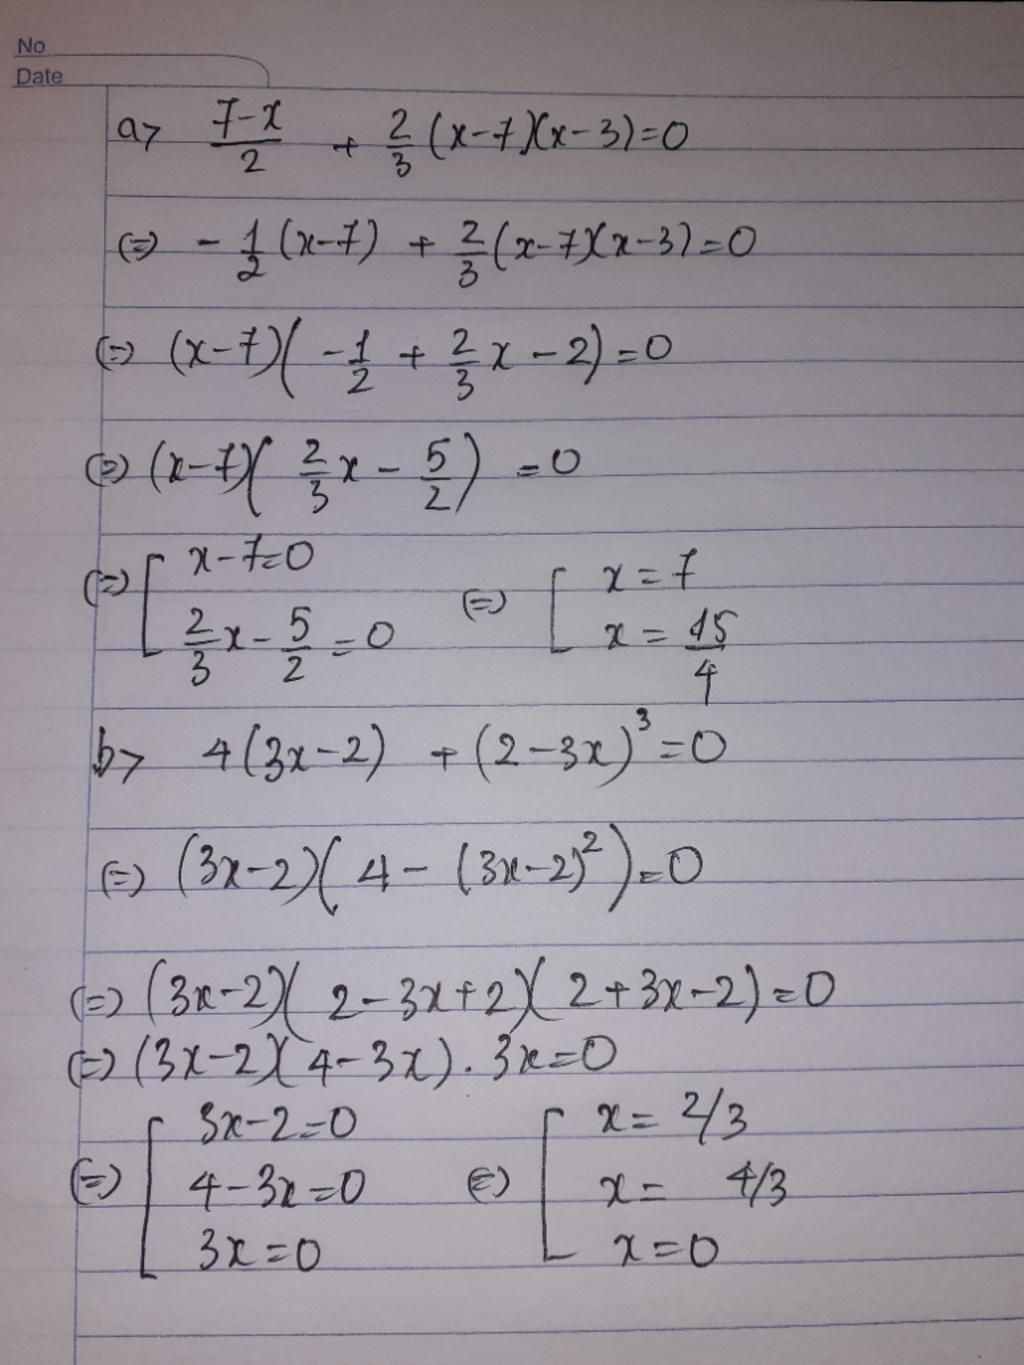 No
Date
a> (7-x)/2 + 2/3 (x-7)(x-3)=0
(=) - 1/2 (x-7) + 2/3 (x-7)(x-3)=0
(=) (x-7)( -1/2 + 2/3 x - 2)=0
(=) (x-7)( 2/3 x - 5/2 ) =0
(=) [ x-7=0 ; 2/3 x - 5/2 =0 (=) [ x=7 ; x= 15/4
b> 4(3x-2) + (2-3x)³=0
(=) (3x-2)( 4- (3x-2)²)=0
(=) (3x-2)( 2-3x+2)( 2+3x-2)=0
(=) (3x-2)( 4-3x). 3x=0
(=) [ 3x-2=0 ; 4-3x=0 ; 3x=0 (=) [ x= 2/3 ; x= 4/3 ; x=0